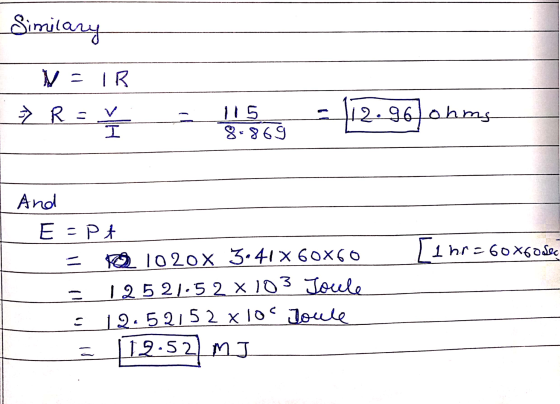 Similary
V = IR
⇒ R = V/I = 115/8.869 = 12.96 ohms
And
E = Pt
= 1020 × 3.41 × 60 × 60 [1 hr = 60×60 sec
= 12521.52 × 10³ Joule
= 12.52152 × 10⁶ Joule
= 12.52 MJ